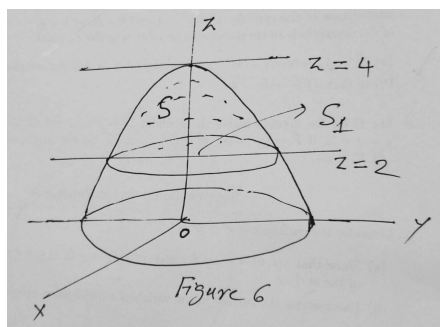 Z
z = 4
S
S1
z = 2
O
Y
X
Figure 6